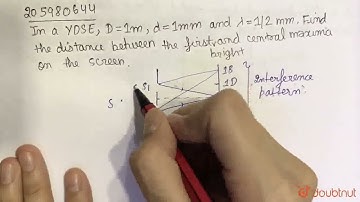 205980644
In a YDSE, D=1m, d=1mm and λ=1/2 mm. Find
the distance between the first and central maxima
bright
on the screen.
1B
1D
Interference
pattern
S1
S
doubtnut